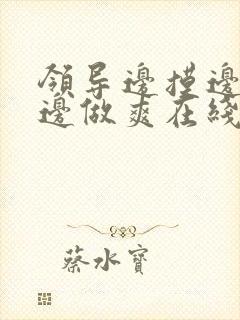 領导邊摸邊
邊做爽在綫
蔡水寶